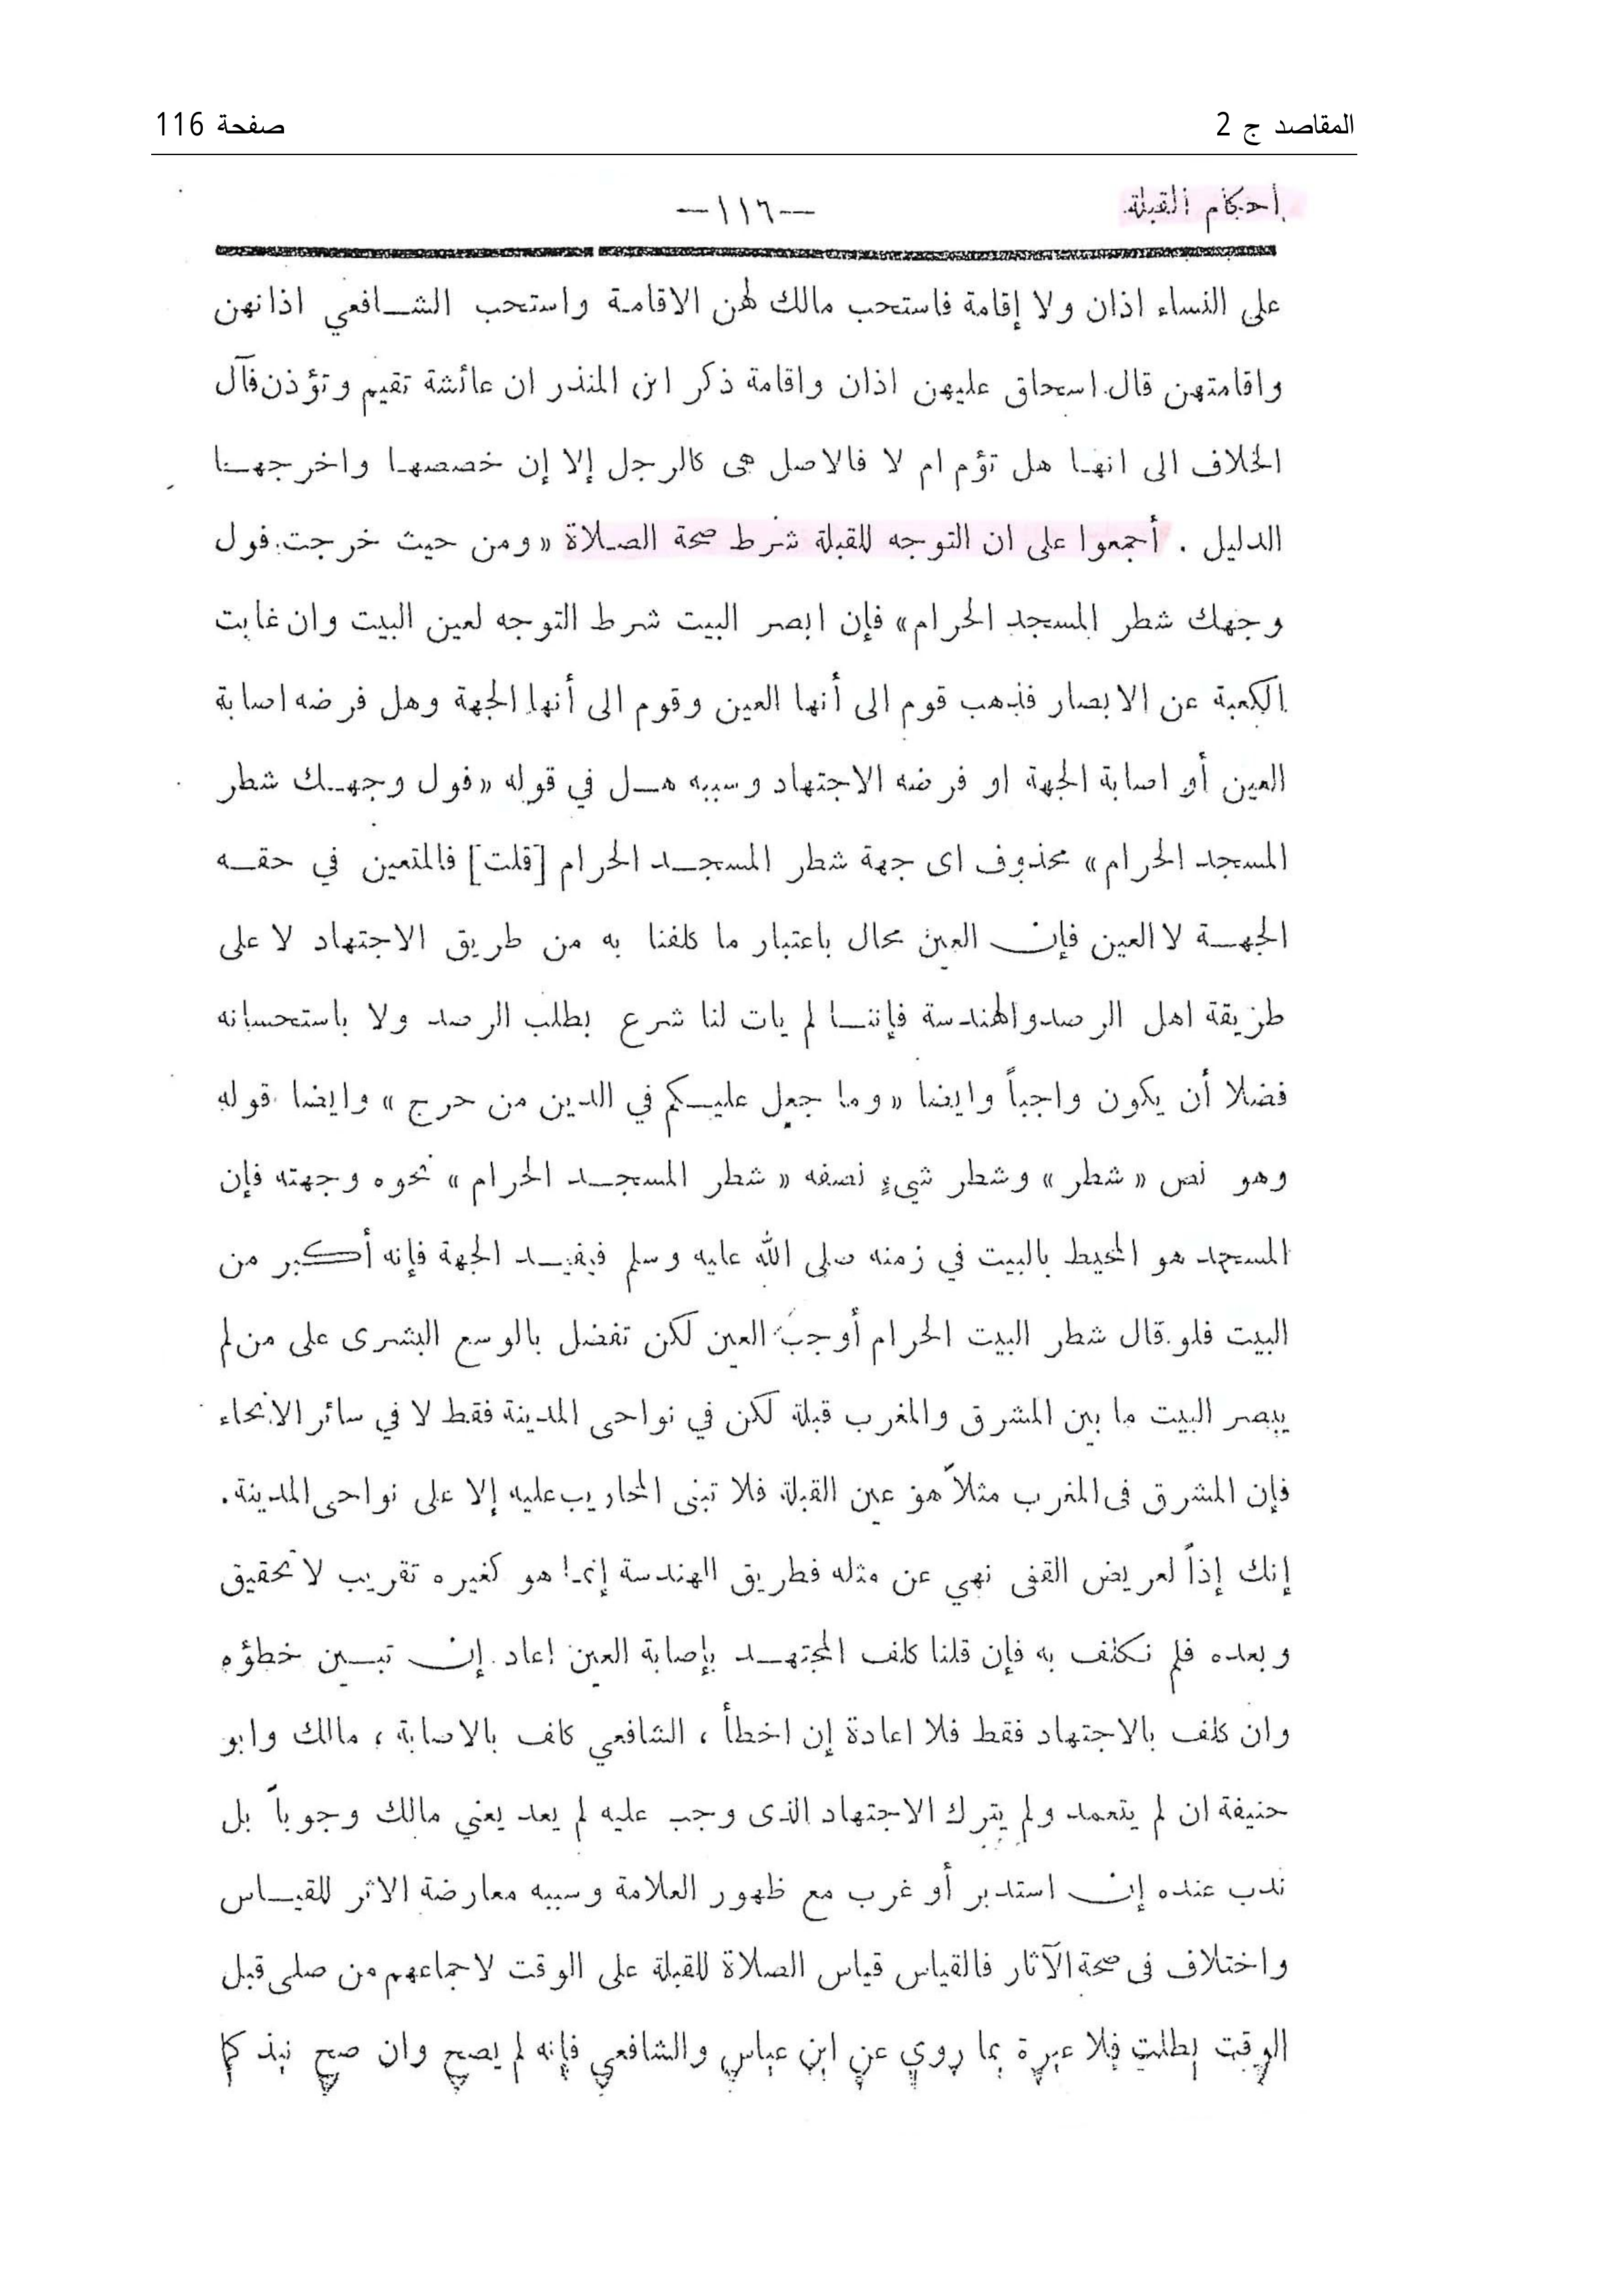 المقاصد ج 2
صفحة 116
احكام القبلة
—١١٦—
على النساء اذان ولا إقامة فاستحب مالك لهن الاقامة واستحب الشافعي اذانهن
واقامتهن قال اسحاق عليهن اذان واقامة ذكر ابن المنذر ان عائشة تقيم وتؤذن فآل
الخلاف الى انها هل تؤم ام لا فالاصل هى كالرجل إلا إن خصصها واخرجهنا
الدليل . أجمعوا على ان التوجه للقبلة شرط صحة الصلاة «ومن حيث خرجت فول
وجهك شطر المسجد الحرام» فإن ابصر البيت شرط التوجه لعين البيت وان غابت
الكعبة عن الابصار فذهب قوم الى أنها العين وقوم الى أنها الجهة وهل فرضه اصابة
العين أو اصابة الجهة او فرضه الاجتهاد وسببه هل في قوله «فول وجهك شطر
المسجد الحرام» محذوف اى جهة شطر المسجد الحرام [قلت] فالمتعين في حقه
الجهة لا العين فإن العين محال باعتبار ما كلفنا به من طريق الاجتهاد لا على
طريقة اهل الرصد والهندسة فإننا لم يات لنا شرع بطلب الرصد ولا باستحسانه
فضلا أن يكون واجباً وايضا «وما جعل عليكم في الدين من حرج» وايضا قوله
وهو نص «شطر» وشطر شيءٍ نصفه «شطر المسجد الحرام» نحوه وجهته فإن
المسجد هو المحيط بالبيت في زمنه صلى الله عليه وسلم فيفيد الجهة فإنه أكبر من
البيت فلو قال شطر البيت الحرام أوجب العين لكن تفضل بالوسع البشرى على من لم
يبصر البيت ما بين المشرق والمغرب قبلة لكن في نواحى المدينة فقط لا في سائر الانحاء
فإن المشرق فى المغرب مثلاً هو عين القبلة فلا تبنى المحاريب عليه إلا على نواحى المدينة.
إنك إذاً لعريض القفى نهي عن مثله فطريق الهندسة إنما هو كغيره تقريب لا تحقيق
وبعده فلم نكلف به فإن قلنا كلف المجتهد بإصابة العين اعاد إن تبين خطؤه
وان كلف بالاجتهاد فقط فلا اعادة إن اخطأ ، الشافعي كلف بالاصابة ، مالك وابو
حنيفة ان لم يتعمد ولم يترك الاجتهاد الذى وجب عليه لم يعد يعني مالك وجوباً بل
ندب عنده إن استدبر أو غرب مع ظهور العلامة وسببه معارضة الاثر للقياس
واختلاف فى صحة الآثار فالقياس قياس الصلاة للقبلة على الوقت لاجماعهم من صلى قبل
الوقت بطلت فلا عبرة بما روي عن ابن عباس والشافعي فإنه لم يصح وان صح نبذ كما